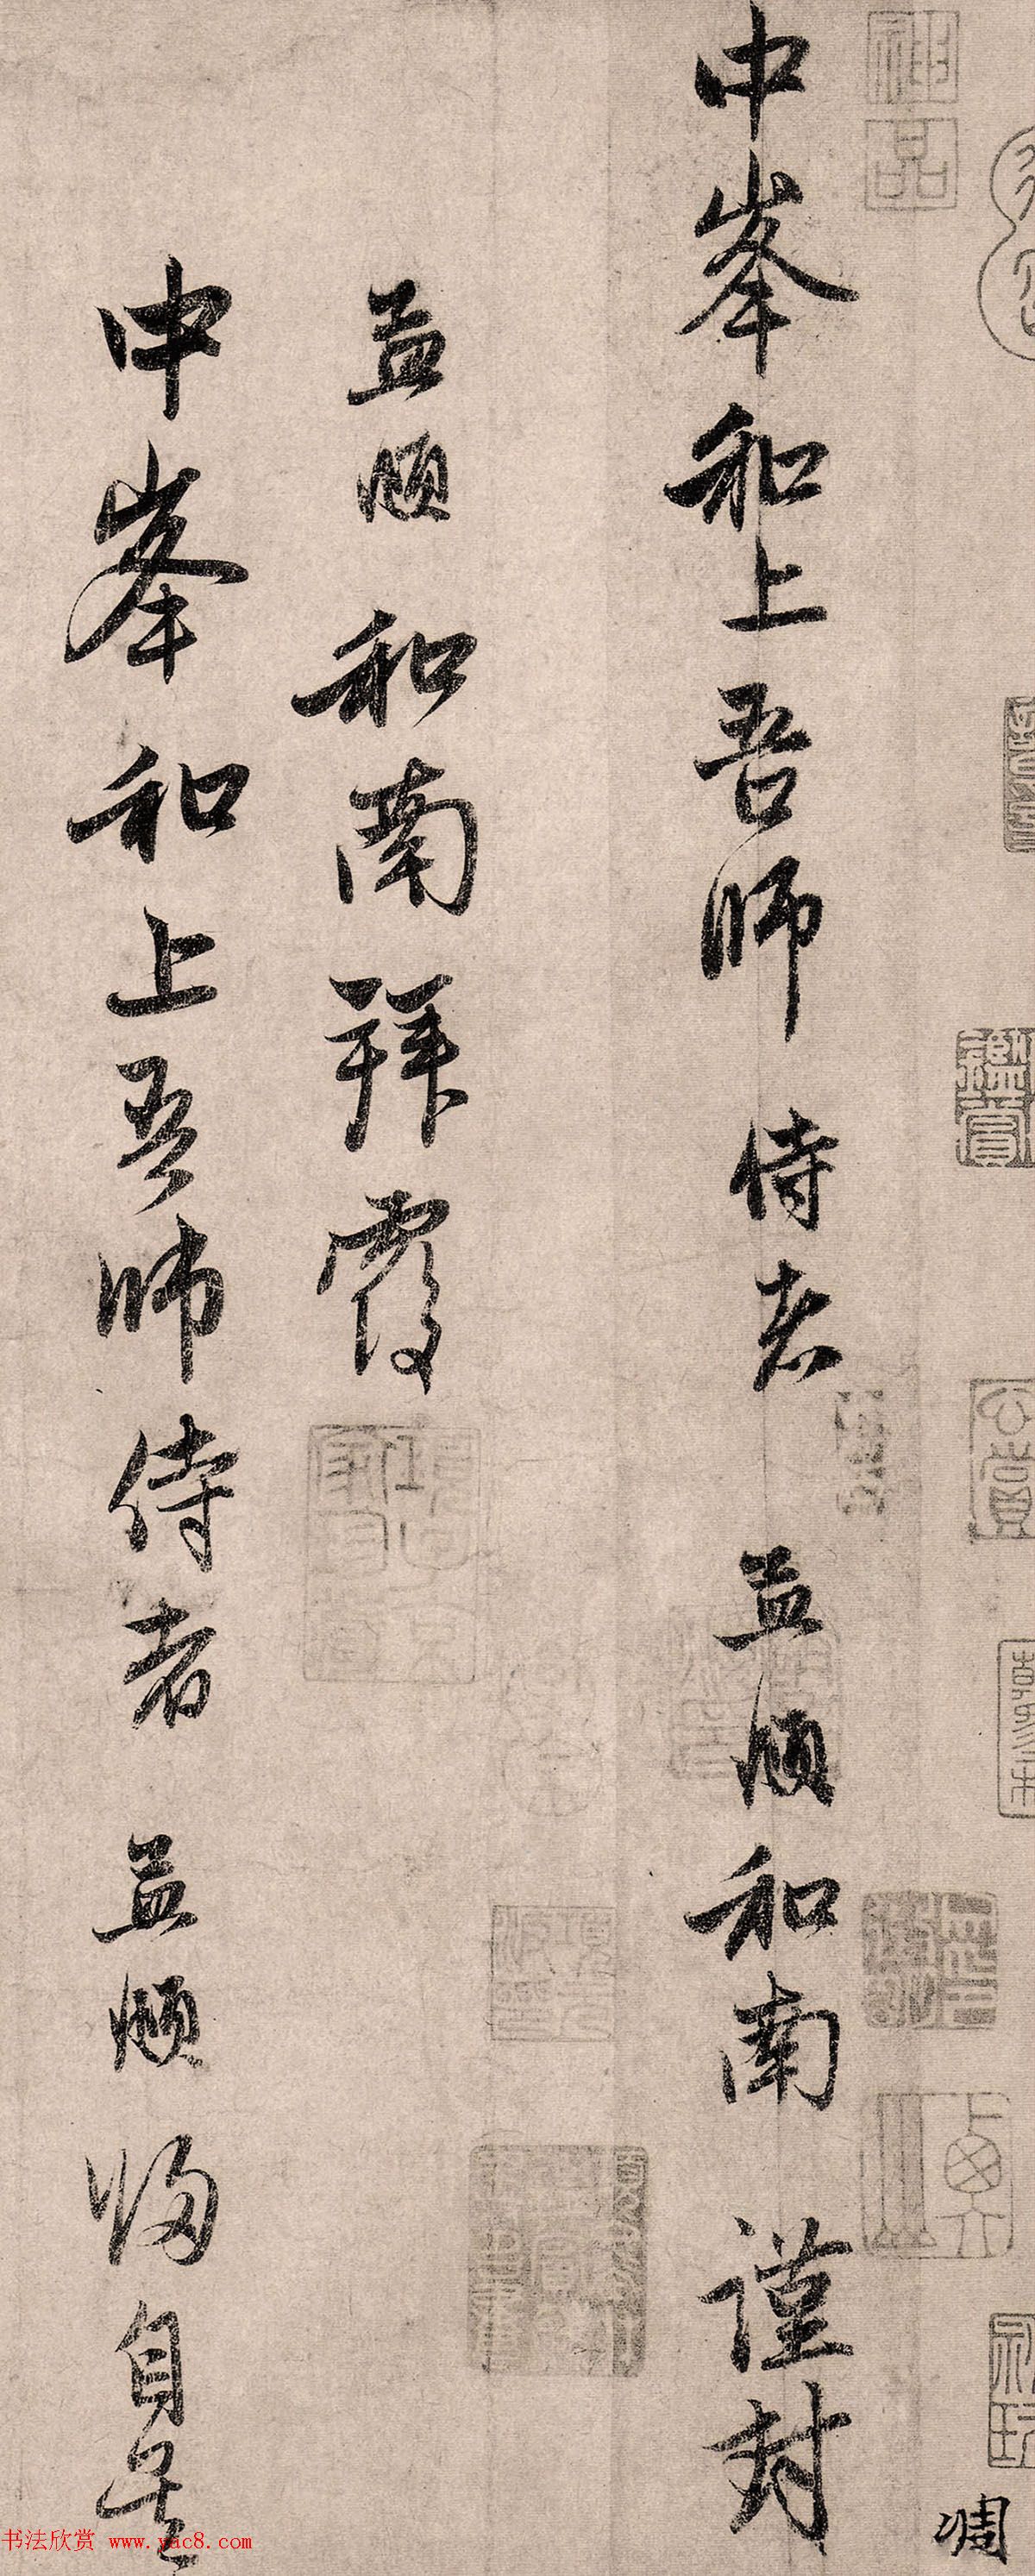 中峯和上吾師 侍者 孟頫和南 謹封
孟頫和南拜覆
中峯和上吾師侍者 孟頫歸自吴
神品
鑑賞
公賞
書法欣賞 www.yac8.com